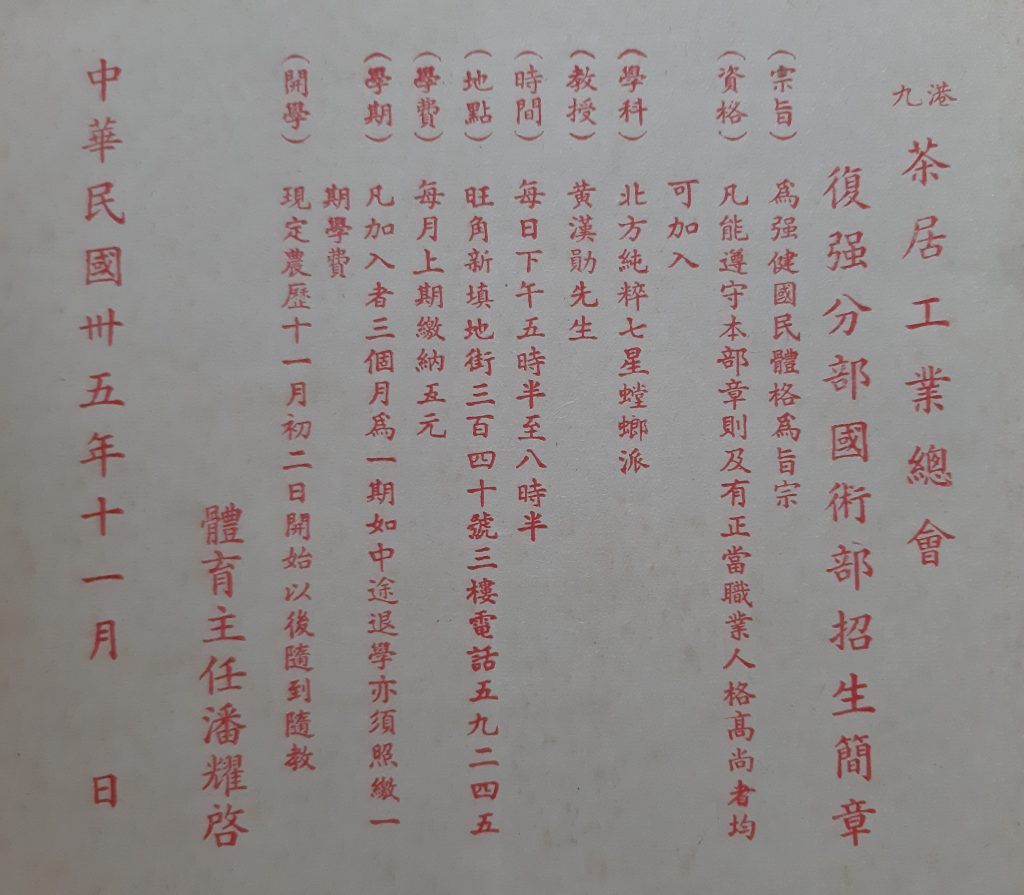 港九茶居工業總會
復强分部國術部招生簡章
(宗旨) 爲强健國民體格爲旨宗
(資格) 凡能遵守本部章則及有正當職業人格高尚者均
可加入
(學科) 北方純粹七星螳螂派
(教授) 黄漢勛先生
(時間) 每日下午五時半至八時半
(地點) 旺角新填地街三百四十號三樓電話五九二四五
(學費) 每月上期繳納五元
(學期) 凡加入者三個月爲一期如中途退學亦須照繳一
期學費
(開學) 現定農歷十一月初二日開始以後隨到隨教
體育主任潘耀啓
中華民國卅五年十一月 日